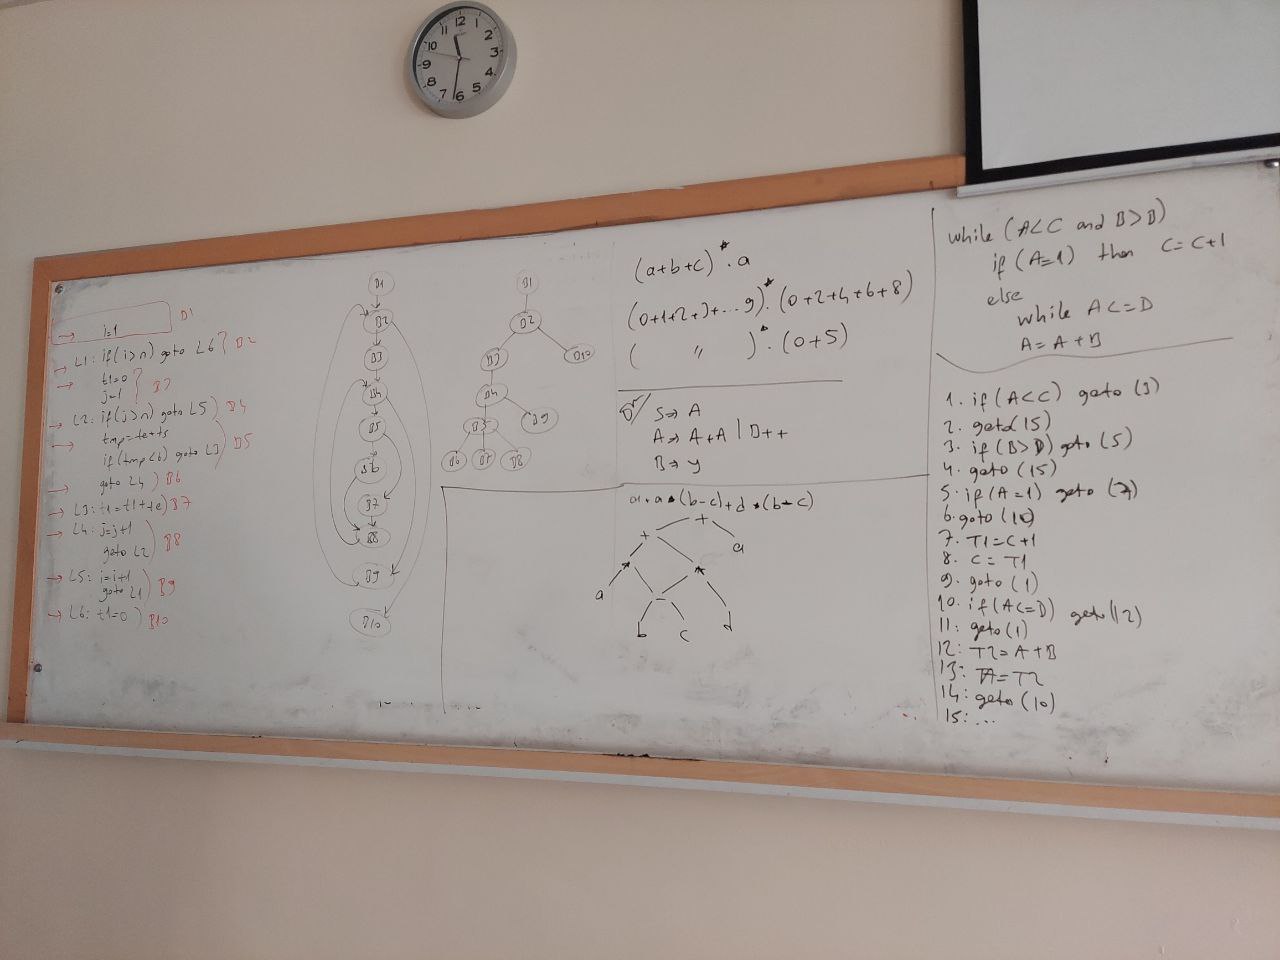 12
1
2
3
4
5
6
7
8
9
10
11
i=1
B1
L1: if(i>n) goto L6 } B2
t1=0
j=1 } B3
L2: if(j>n) goto L5 ) B4
tmp=te+ts
if(tmp<6) goto L3 ) B5
goto L4 ) B6
L3: t1=t1+te) B7
L4: j=j+1
goto L2 ) B8
L5: i=i+1
goto L1 ) B9
L6: t1=0 ) B10
B1
B2
B3
B4
B5
B6
B7
B8
B9
B10
B1
B2
B3
B10
B4
B5
B9
B6
B7
B8
(a+b+c)*.a
(0+1+2+3+...9)*.(0+2+4+6+8)
( " )*.(0+5)
S⇒ A
A⇒ A+A | B++
B⇒ y
a+a*(b-c)+d*(b-c)
+
+
a
*
*
a
-
b
c
d
while (A<C and B>D)
if (A=1) then C=C+1
else
while A<=D
A=A+B
1. if(A<C) goto (3)
2. goto(15)
3. if(B>D) goto (5)
4. goto (15)
5. if(A=1) goto (7)
6. goto (10)
7. T1=C+1
8. C=T1
9. goto (1)
10. if(A<=D) goto(12)
11: goto(1)
12: T2=A+B
13: A=T2
14: goto(10)
15: ...